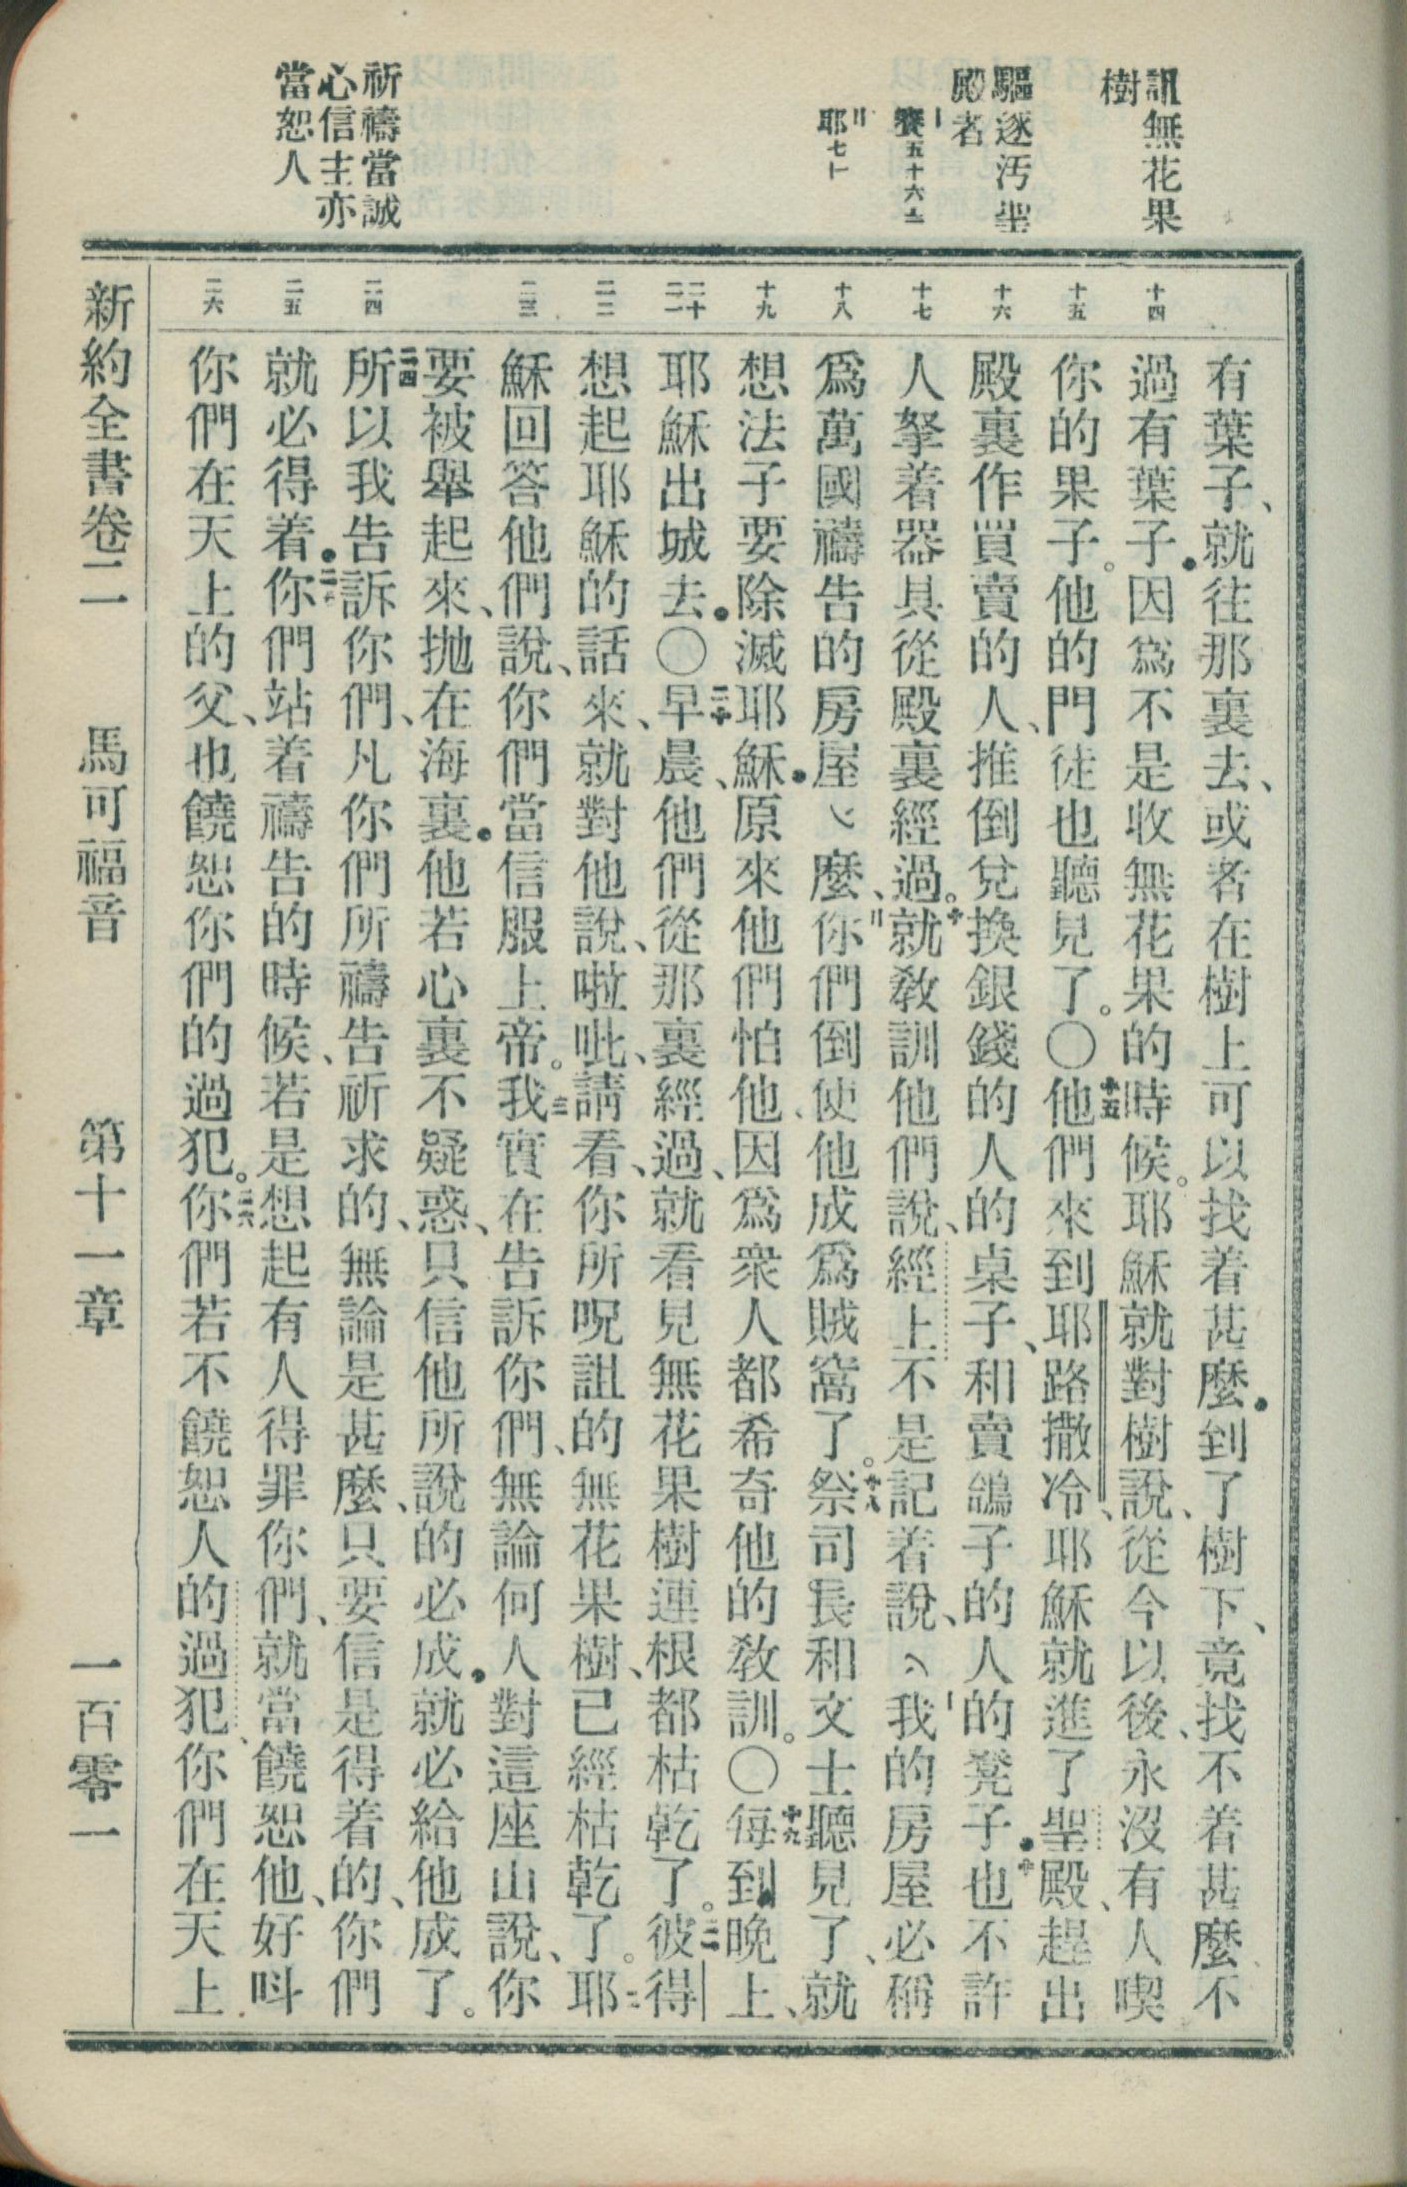 訊無花果
樹
驅逐汚聖
殿者
賽五十六
耶七
祈禱當誠
心信主亦
當恕人
十四
十五
十六
十七
十八
十九
二十
二一
二二
二三
二四
二五
二六
有葉子、就往那裏去、或者在樹上可以找着甚麼．到了樹下、竟找不着甚麼不
過有葉子．因爲不是收無花果的時候。耶穌就對樹說、從今以後、永沒有人喫
你的果子。他的門徒也聽見了。〇十五他們來到耶路撒冷、耶穌就進了聖殿、趕出
殿裏作買賣的人、推倒兌換銀錢的人的桌子、和賣鴿子的人的凳子．也不許
人拏着器具從殿裏經過。就教訓他們說、經上不是記着說、我的房屋必稱
爲萬國禱告的房屋麼、你們倒使他成爲賊窩了。十八祭司長和文士聽見了、就
想法子要除滅耶穌．原來他們怕他、因爲衆人都希奇他的敎訓。〇十九每到晚上、
耶穌出城去．〇二十早晨、他們從那裏經過、就看見無花果樹連根都枯乾了。彼得
想起耶穌的話來、就對他說、啦吡、請看、你所呪詛的無花果樹、已經枯乾了。耶
穌回答他們說、你們當信服上帝。我實在告訴你們、無論何人對這座山說、你
要被舉起來、抛在海裏．他若心裏不疑惑、只信他所說的必成．就必給他成了。
二四所以我告訴你們、凡你們所禱告祈求的、無論是甚麼、只要信是得着的、你們
就必得着．你們站着禱告的時候、若是想起有人得罪你們、就當饒恕他、好呌
你們在天上的父、也饒恕你們的過犯。二六你們若不饒恕人的過犯、你們在天上
新約全書卷二　馬可福音　第十一章　一百零一